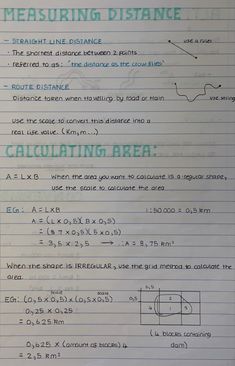 MEASURING DISTANCE
- STRAIGHT LINE DISTANCE
use a ruler
• The shortest distance between 2 points
• referred to as: "the distance as the crow flies"
- ROUTE DISTANCE
Distance taken when travelling by road or train
use string
Use the scale to convert this distance into a
real life value. (Km; m...)
CALCULATING AREA:
A = L x B When the area you want to calculate is a regular shape,
use the scale to calculate the area
EG: A = L x B 1:50 000 = 0,5 km
A = (L x 0,5)(B x 0,5)
= (7 x 0,5)(5 x 0,5)
= 3,5 x 2,5 → ∴ A = 8,75 km²
When the shape is IRREGULAR, use the grid method to calculate the
area.
EG: (0,5 x 0,5) x (0,5 x 0,5)
scale scale
0,5
0,25 x 0,25
= 0,625 km
1
2
3
4
(4 blocks containing
dam)
0,625 x (amount of blocks) 4
= 2,5 km²